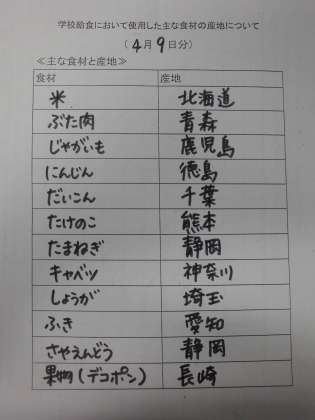 学校給食において使用した主な食材の産地について
（4月9日分）
≪主な食材と産地≫
食材 産地
米 北海道
ぶた肉 青森
じゃがいも 鹿児島
にんじん 徳島
だいこん 千葉
たけのこ 熊本
たまねぎ 静岡
キャベツ 神奈川
しょうが 埼玉
ふき 愛知
さやえんどう 静岡
果物(デコポン) 長崎